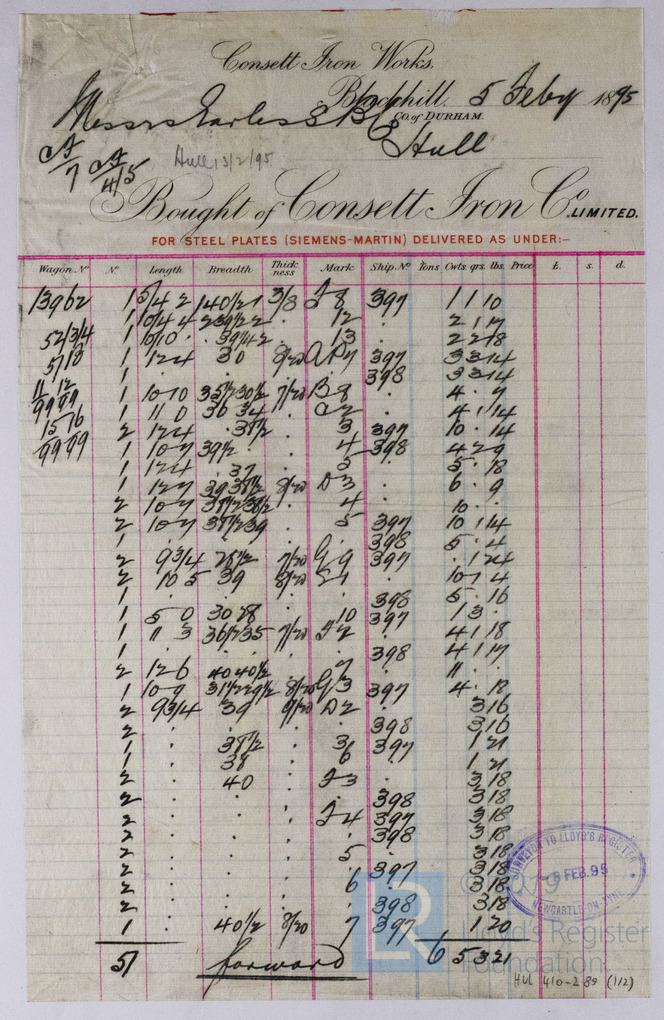 Consett Iron Works.
Blackhill, 5 Feby 1895
CO. of DURHAM.
Messrs Earles S B Co
Hull
Hull 13/2/95
7 4/5
Bought of Consett Iron Co. LIMITED.
FOR STEEL PLATES (SIEMENS-MARTIN) DELIVERED AS UNDER:-
Wagon No No Length Breadth Thickness Mark Ship No Tons Cwts. qrs. lbs. Price £. s. d.
13962 1 5/4 2 140 1/2 1 3/8 J 8 397 1 1 10
1 12 2 1 17
52/3/4 1 10/10 . 39 42 . 13 2 2 18
5718 1 12 4 30 8/20 A P 7 397 3 3 14
1 . . . . 398 3 3 14
11 12 1 10 10 35 1/2 30 1/2 7/20 B 8 . 4 . 9
9999 1 11 0 36 34 . C 2 . 4 1 14
1576 2 12 4 . 37 1/2 . 3 397 10 . 14
9999 1 10 7 39 1/2 . . 4 398 4 2 9
1 12 4 . 37 . 5 . 5 . 18
1 12 7 39 38 1/2 8/20 D 3 . 6 . 9
2 10 7 38 1/2 . 4 . 10 . .
2 10 7 38 1/2 39 . 5 397 10 1 4
1 . . . . 398 5 . 4
2 9 3/4 28 1/2 7/20 G 9 397 . 1 24
2 10 5 39 8/20 E 1 . 10 1 4
1 . . . . 398 5 . 16
1 5 0 30 28 . 10 397 1 3 .
1 11 3 36 1/2 35 7/20 F 2 . 4 1 18
1 . . . . 398 4 1 17
2 12 6 40 40 1/2 . 7 . 11 . .
1 10 9 31 1/2 29 1/2 8/20 G 3 397 4 . 18
2 9 3/4 39 9/20 D 2 . 3 16
2 . . . . 398 3 16
1 . 38 1/2 . 3 397 1 21
1 . 38 . 6 . 1 21
2 . 40 . F 3 . 3 18
2 . . . . 398 3 18
2 . . . F 4 397 3 18
2 . . . . 398 3 18
2 . . . 5 . 3 18
2 . . . . 397 3 18
2 . . . 6 . 3 18
2 . . . . 398 3 18
1 . 40 1/2 8/20 7 397 1 20
51 forward 6 5 3 21
SURVEYOR TO LLOYD'S REGISTER
FEB. 95
NEWCASTLE-ON-TYNE
© 2019
LR
Lloyd's Register
Foundation
HUL 410-2 89 (1/2)